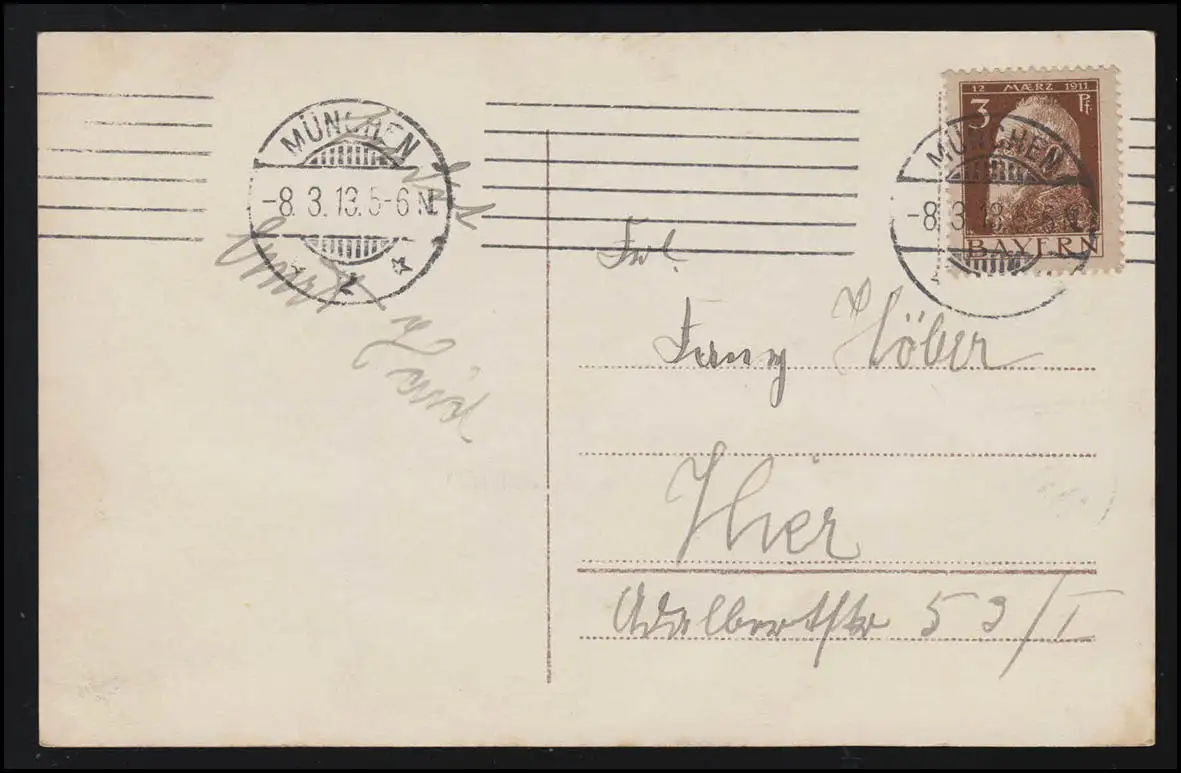 MÜNCHEN
-8.3.13.5-6 N.
2
12 MÆRZ 1911
3 Pf.
BAYERN
MÜNCHEN
Frl.
Fanny Höber
Hier
Adalbertstr 53/I